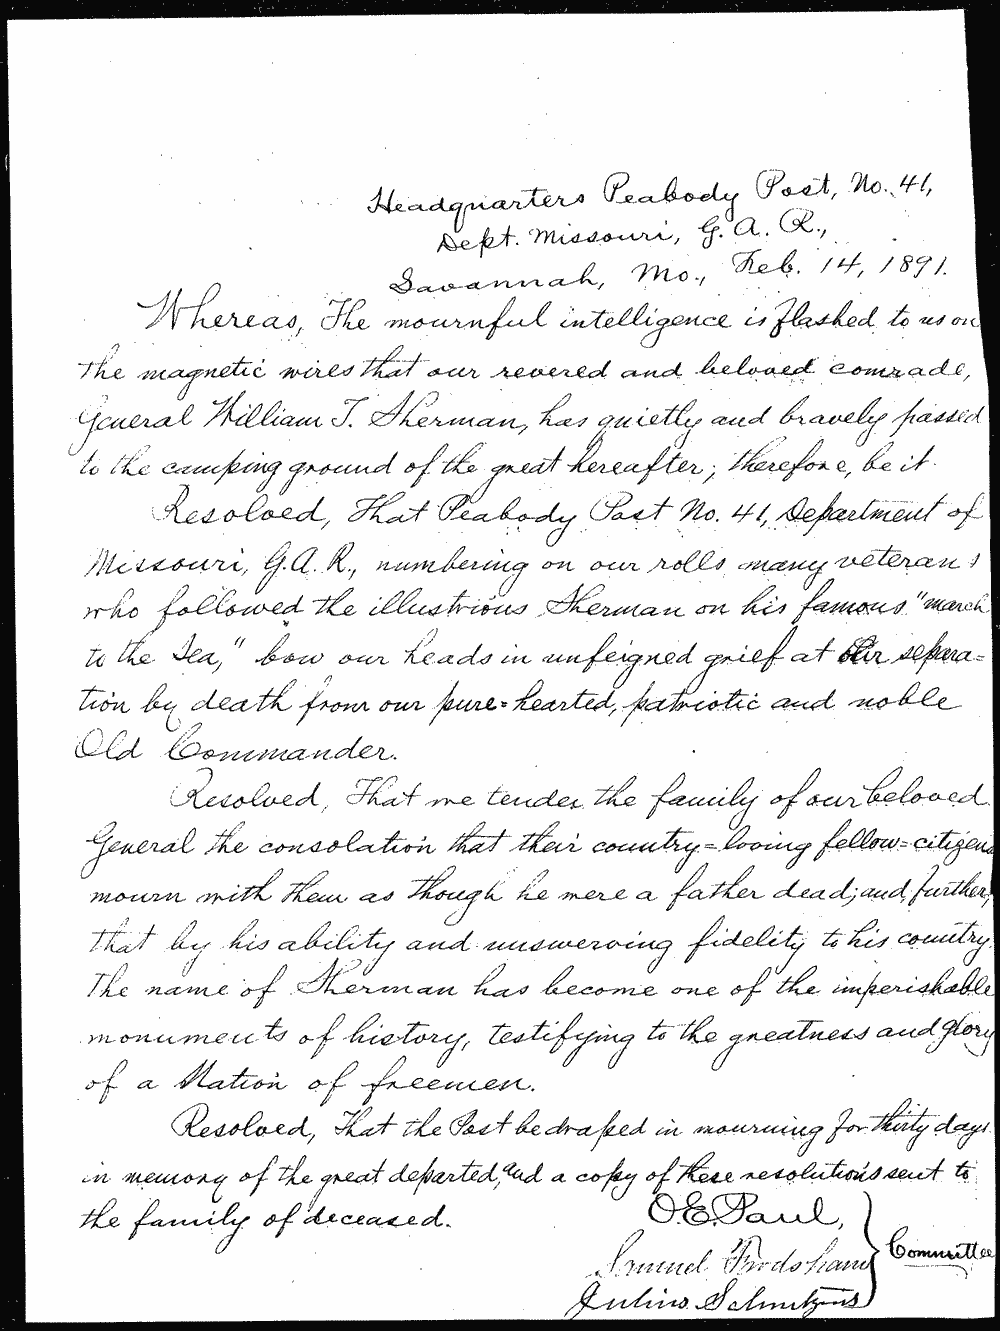 Headquarters Peabody Post, No. 41,
Dept. Missouri, G. A. R.,
Savannah, Mo., Feb. 14, 1891.
Whereas, The mournful intelligence is flashed to us on
the magnetic wires that our revered and beloved comrade,
General William T. Sherman, has quietly and bravely passed
to the camping ground of the great hereafter; therefore, be it
Resolved, That Peabody Post No. 41, Department of
Missouri, G. A. R., numbering on our rolls many veterans
who followed the illustrious Sherman on his famous "march
to the Sea," bow our heads in unfeigned grief at our separa=
tion by death from our pure=hearted, patriotic and noble
Old Commander.
Resolved, That we tender the family of our beloved
General the consolation that their country=loving fellow=citizens
mourn with them as though he were a father dead; and, further,
that by his ability and unswerving fidelity to his country
the name of Sherman has become one of the imperishable
monuments of history, testifying to the greatness and glory
of a Nation of freemen.
Resolved, That the Post be draped in mourning for thirty days
in memory of the great departed, and a copy of these resolutions sent to
the family of deceased.
O. E. Paul,
Samuel Frodsham
Julius
Committee